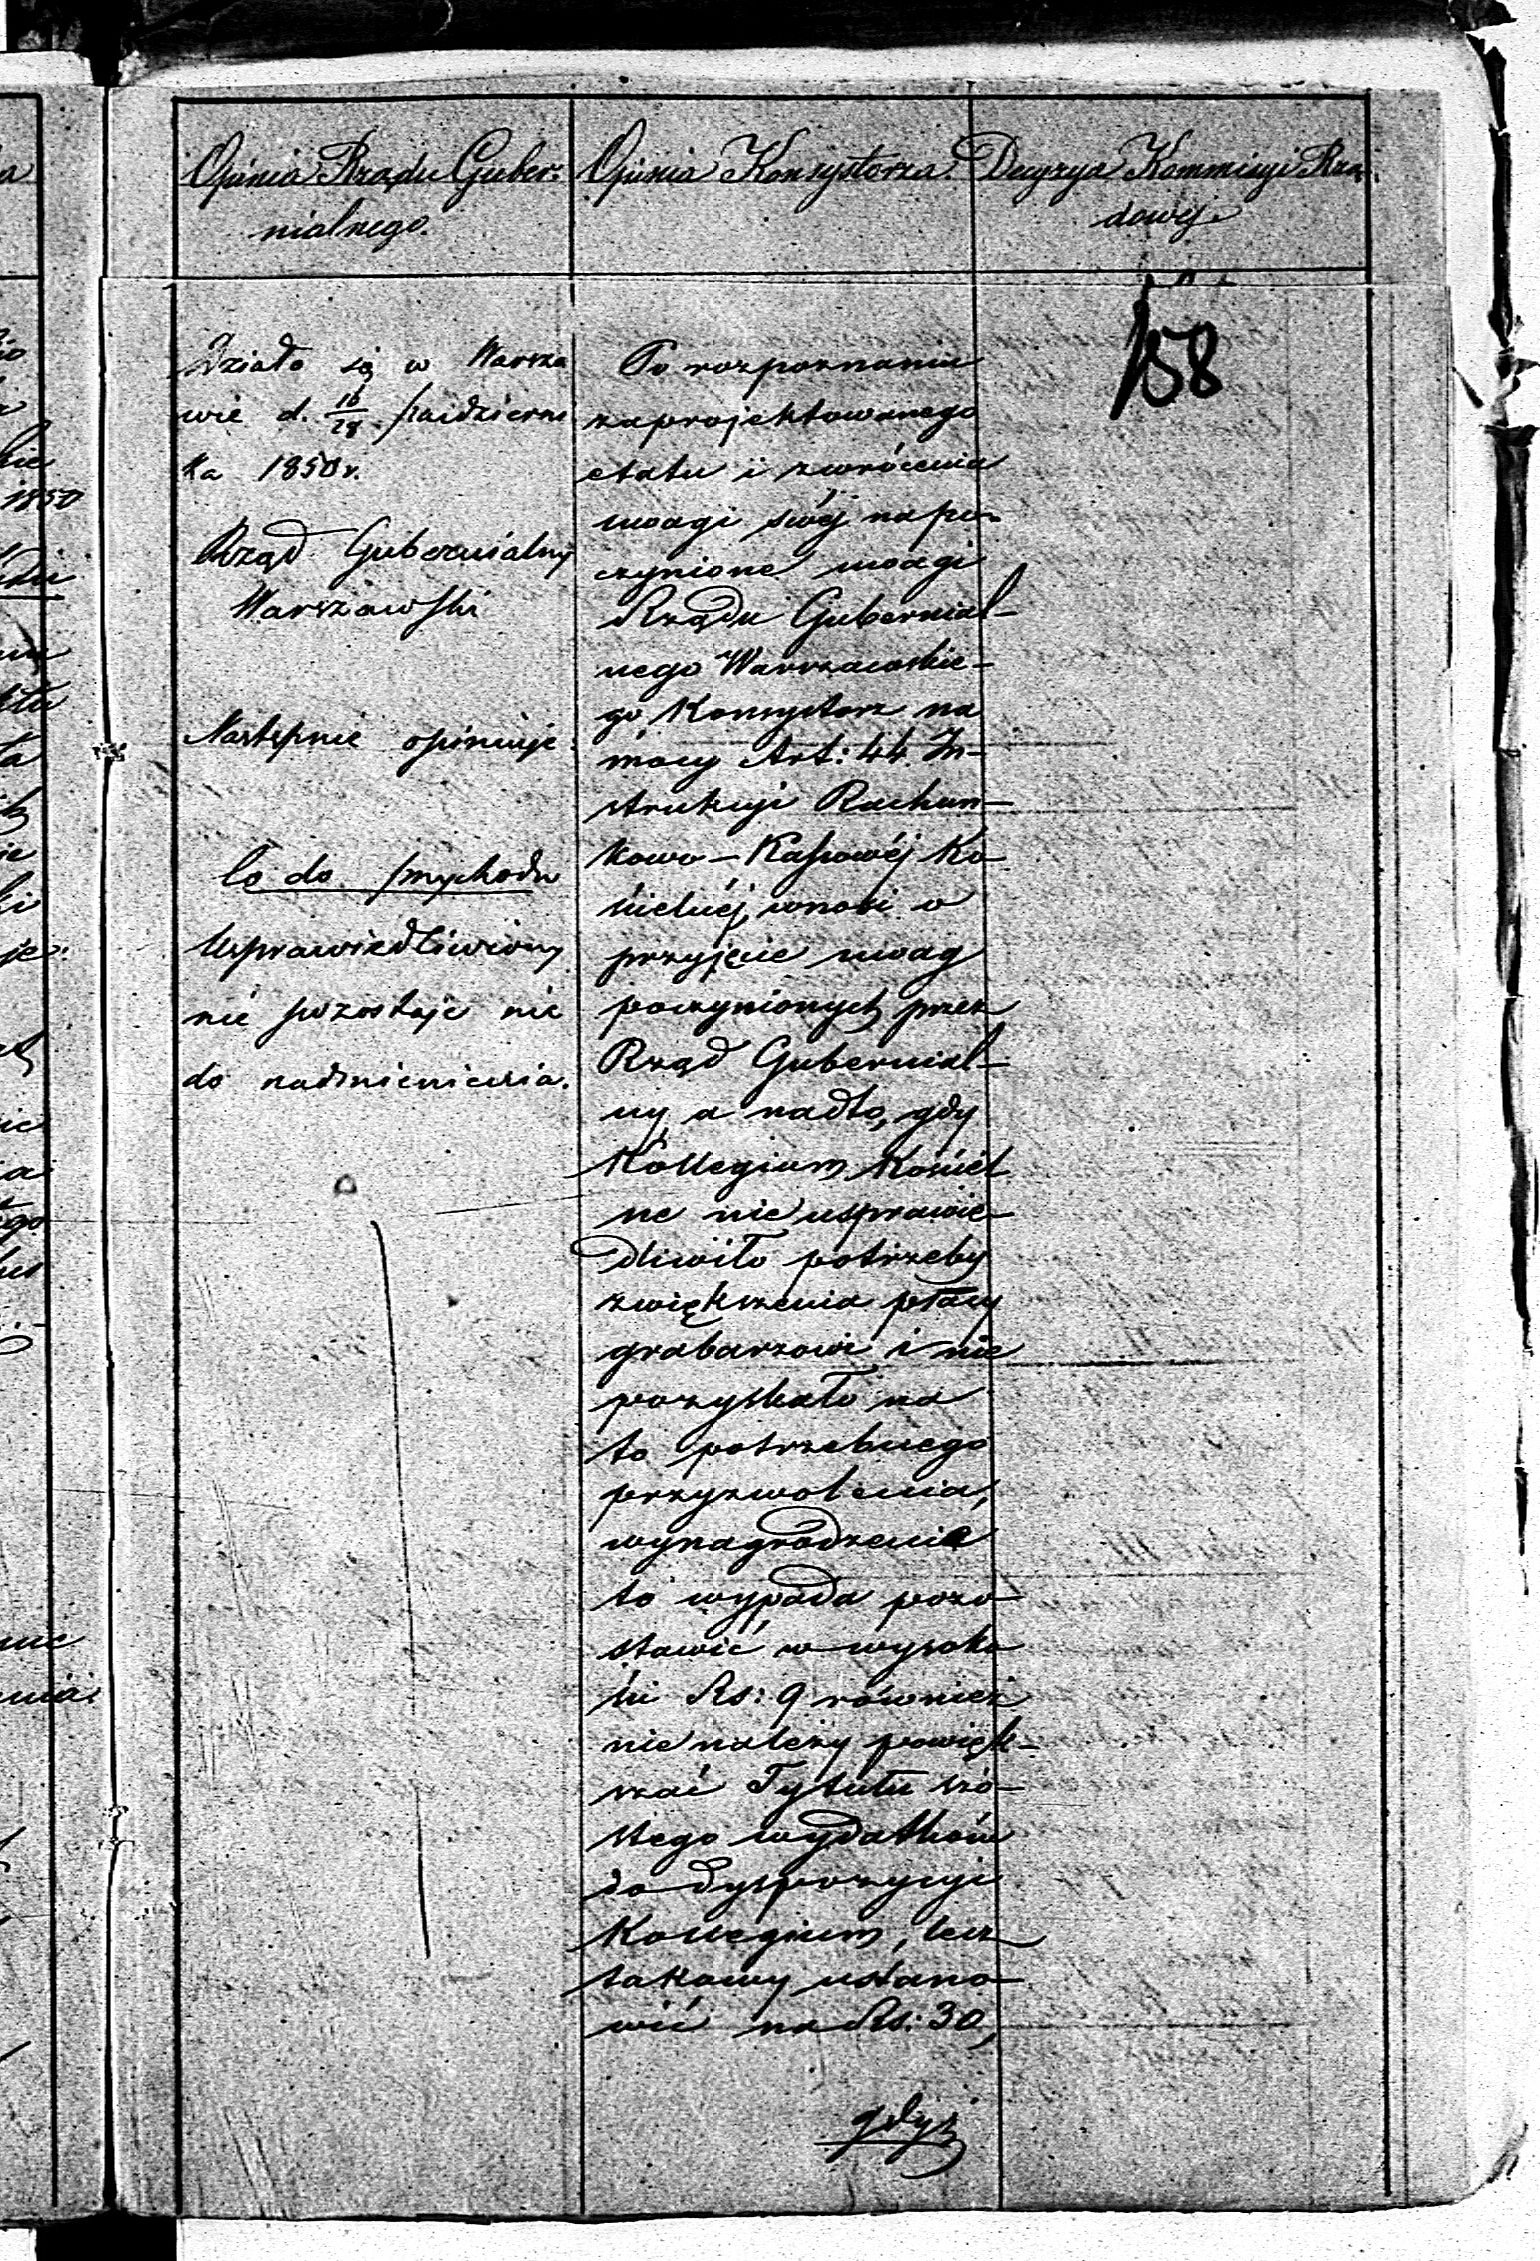 Opinia Rządu Guber:
nialnego.
Opinia Konsystorza.
Decyzya Kommissyi Rzą:
dowej
158
Działo się w Warsza
wie d. 16/28 Październi
ka 1850 r.
Rząd Gubernialny
Warszawski
Następnie opiniuje:
Co do przychodu
Usprawiedliwiony
nie pozostaje nic
do nadmienienia.
Po rozpoznaniu
zaprojektowanego
etatu i zwrócenia
uwagi swéj na po-
czynione uwagi
Rządu Gubernial-
nego Warszawskie-
go Konsystorz na
mocy Art: 44 In-
strukcyi Rachun-
kowo-Kassowéj Ko
ścielnéj, wnosi o
przyjęcie uwag
poczynionych przez
Rząd Gubernial-
ny, a nadto, gdy
Kollegium Kościél
ne nie usprawie-
dliwiło potrzeby
zwiększenia płacy
grabarzowi i nie
pozyskało na
to potrzebnego
przyzwolenia,
wynagrodzenie
to wypada pozo-
stawić w wysoko
ści Rs: 9 również
nie należy powięk-
szać Tytułu szó-
stego wydatków
do dyspozycyi
Kollegium, lecz
takowy ustano-
wić na Rs: 30,
gdyż